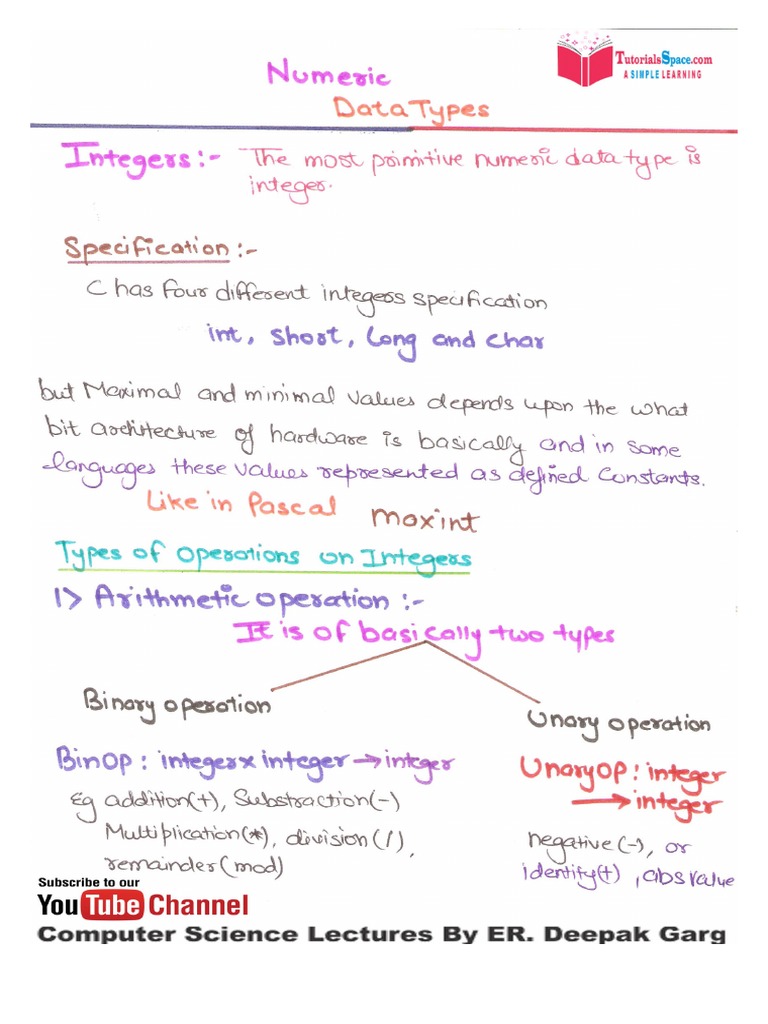 Numeric
Data Types
TutorialsSpace.com
A SIMPLE LEARNING
Integers:- The most primitive numeric data type is
integer.
Specification:-
C has four different integers specification
int, short, long and char
but Maximal and minimal values depends upon the what
bit architecture of hardware is basically and in some
languages these values represented as defined constants.
Like in Pascal maxint
Types of operations on Integers
1> Arithmetic operation :-
It is of basically two types
Binary operation
Unary operation
BinOp : integer x integer → integer
UnaryOP : integer
→ integer
Eg addition(+), Substraction(-)
Multiplication(*), division(/),
remainder(mod)
negative(-), or
identify(+), abs value
Subscribe to our
YouTube Channel
Computer Science Lectures By ER. Deepak Garg